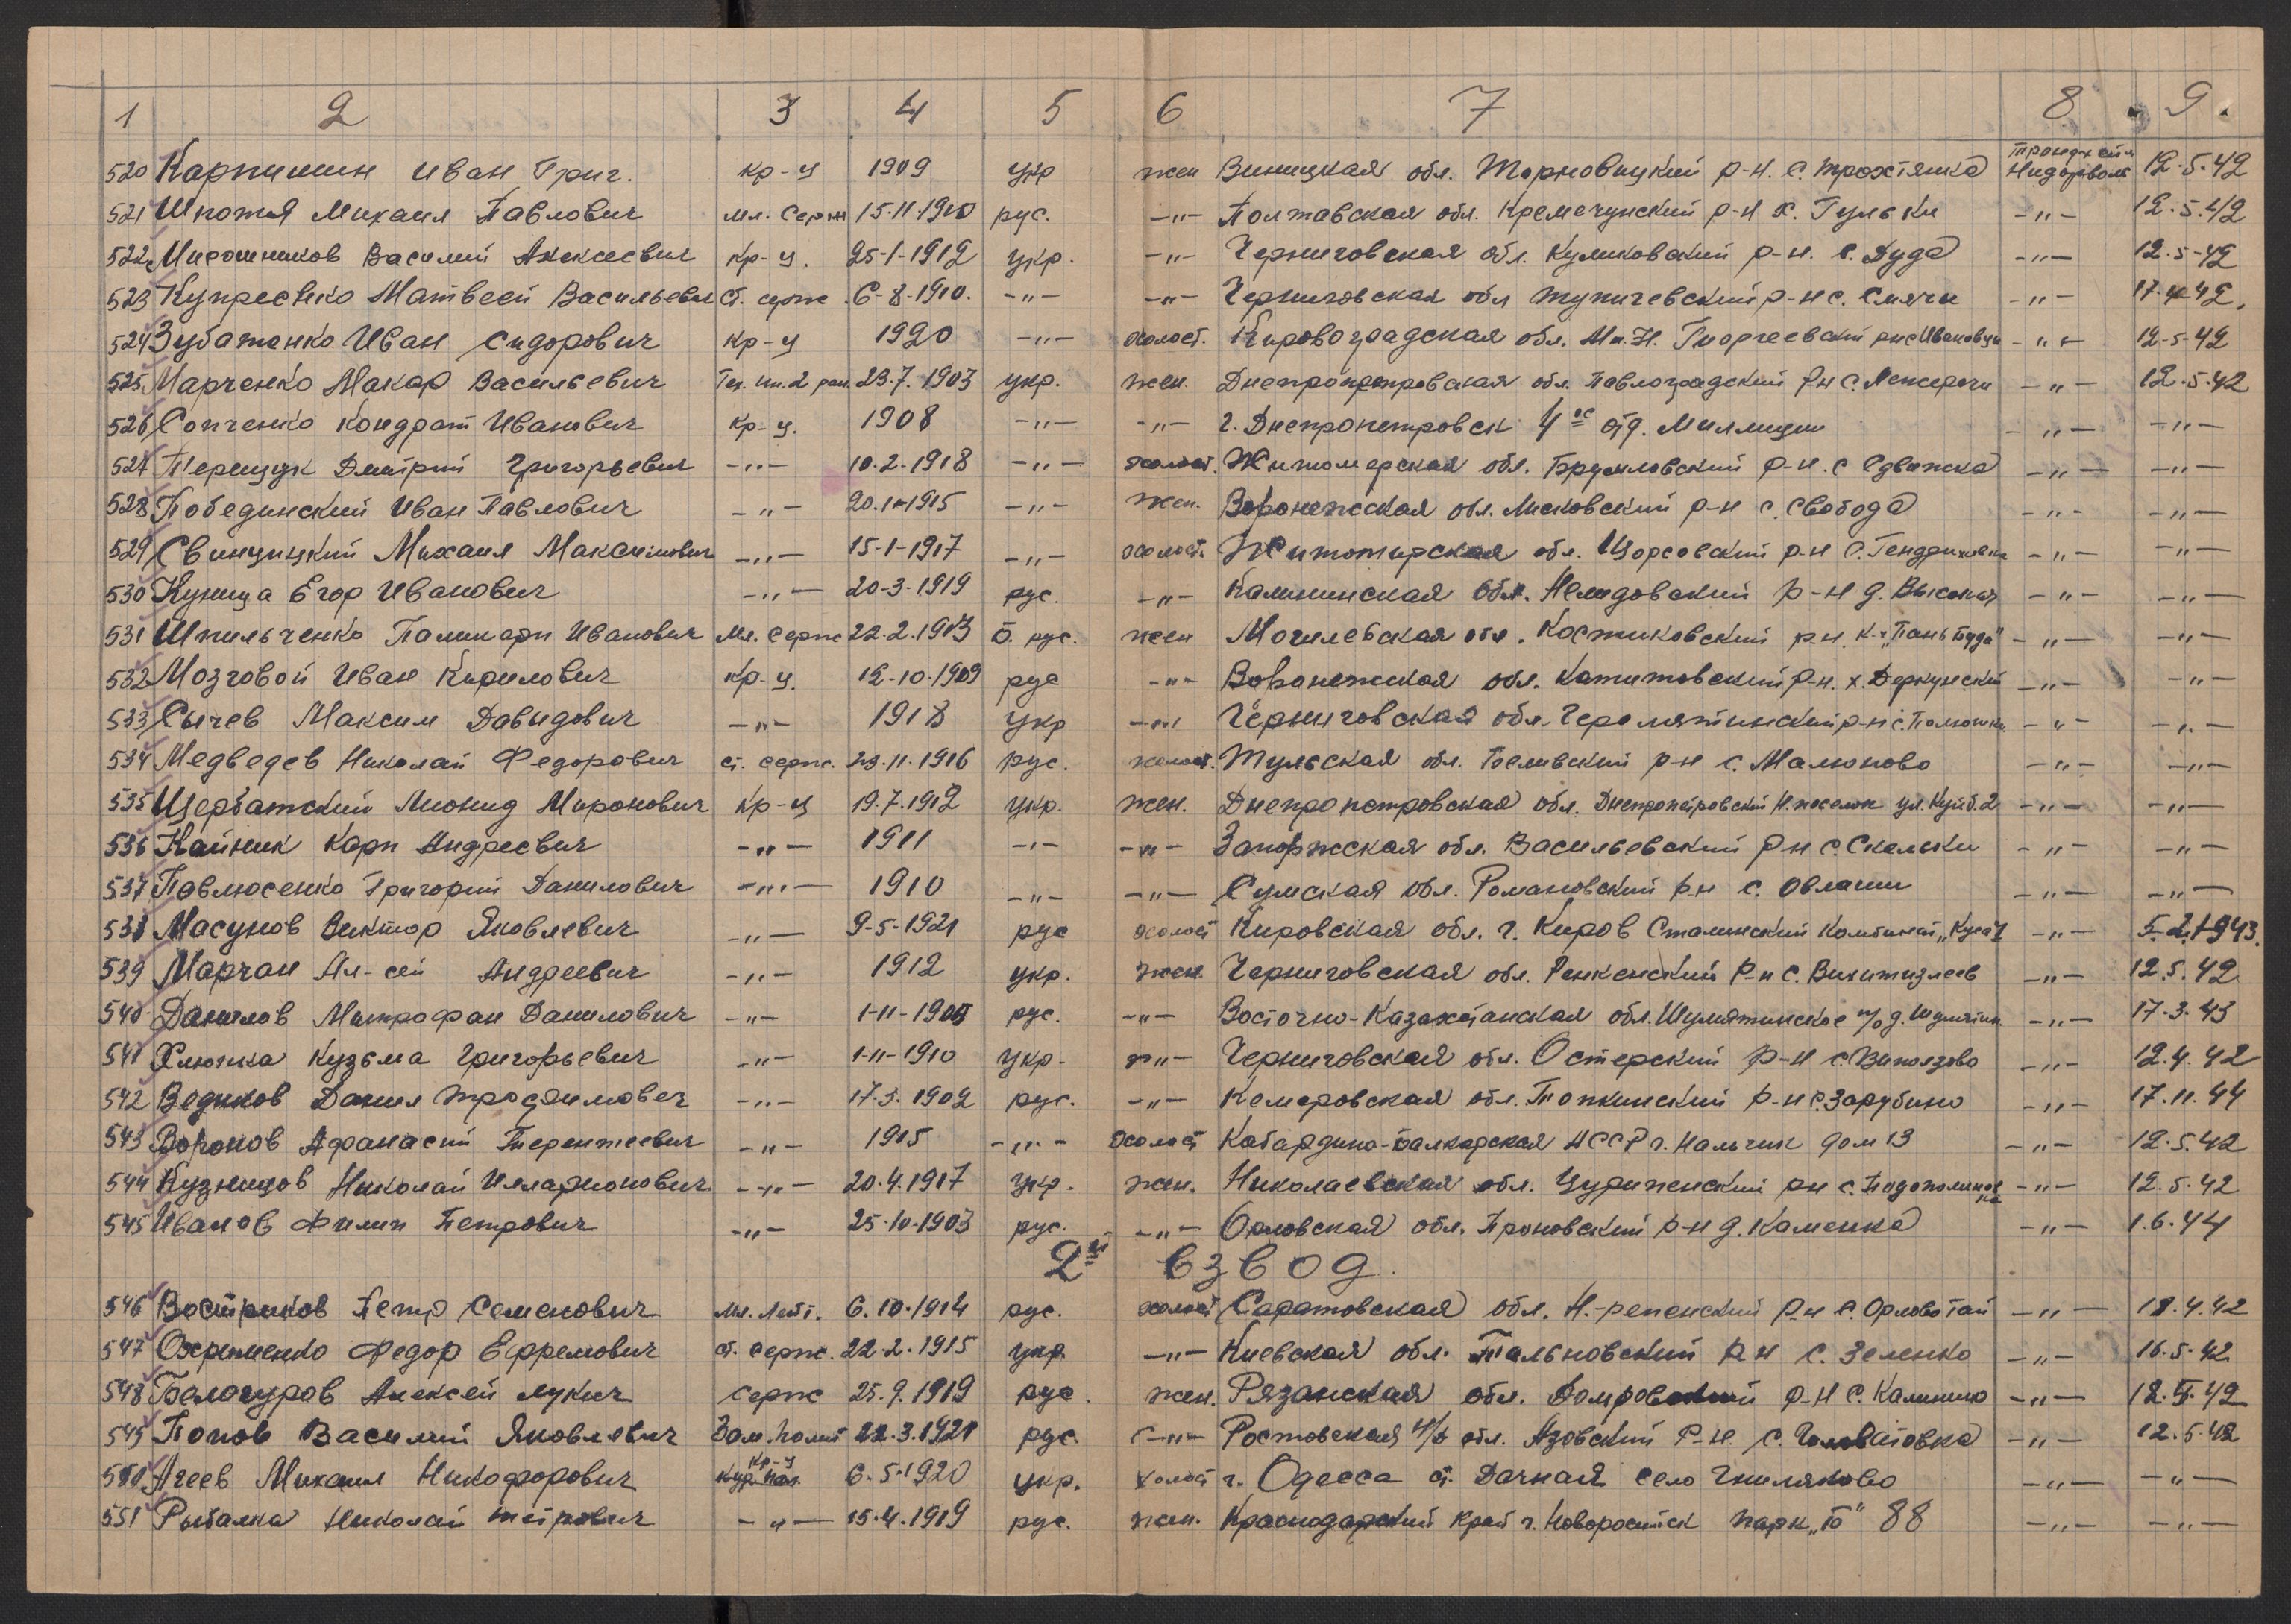 1 2 3 4 5 6 7 8 9.
520 Карпишин Иван Григ. кр-ц 1909 укр жен Виницкая обл. р-н. с. Тростянка 12.5.42
521 Шпотя Михаил Павлович мл. серж 15.11.1910 рус. -"- Полтавская обл. Кремечунский р-н х. Гульки -"- 12.5.42
522 Мирошников Василий Алексеевич кр-ц. 25-1-1912 укр. -"- Черниговская обл. Куликовский р-н. с. Дуда -"- 12.5-42
523 Купресенко Матвеей Васильевич ст. серж. 6-8-1910. -"- -"- Черниговская обл Тупичевский р-н с. -"- 17.4.42.
524 Зубатенко Иван Сидорович кр-ц 1920 -"- холост. Кировоградская обл. -"- 12-5-42
525 Марченко Макар Васильевич Тех. ин. 2 ран. 23.7.1903 укр. жен. Днепропетровская обл. Павлоградский рн с. -"- 12.5.42
526 Сопченко Кондрат Иванович кр-ц. 1908 -"- -"- г. Днепропетровск 4ое отд. Милиции -"- -"-
527 Терещук Дмитрий Григорьевич -"- 10.2-1918 -"- холост. Житомерская обл. Брусиловский р-н. с Сдвижка -"- -"-
528 Побединский Иван Павлович -"- 20.1-1915 -"- жен. Воронежская обл. Лисковский р-н с. Свобода -"- -"-
529 Свинцицкий Михаил Максимович -"- 15-1-1917 -"- холост. Житомирская обл. Щорсовский р-н с. -"- -"-
530 Куница Егор Иванович -"- 20-3-1919 рус. -"- Калининская обл. Нелидовский р-н д. Высокая -"- -"-
531 Шпильченко Палинарп Иванович мл. серж 22.2.1913 б. рус. жен Могилевская обл. Костиковский р-н. -"- -"-
532 Мозговой Иван Кирилович кр-ц. 12-10-1909 рус -"- Воронежская обл. р-н. х. Деркунский -"- -"-
533 Сычев Максим Давидович -"- 1918 укр -"- Черниговская обл. р-н с. -"- -"-
534 Медведев Николай Федорович ст. серж. 23.11.1916 рус. холост. Тульская обл. Беливский р-н с. Малюново -"- -"-
535 Щербатский Лионид Миронович кр-ц 19.7.1912 укр. жен. Днепропетровская обл. Днепропетровский Н. поселок ул. Куйб. 2 -"- -"-
536 Найник Карп Андреевич -"- 1911 -"- -"- Запоржская обл. Васильевский р-н с. Скельки -"- -"-
537 Павлюсенко Григорий Данилович -"- 1910 -"- -"- Сумская обл. Романовский р-н с. Овлаши -"- -"-
538 Масунов Виктор Яковлевич -"- 9-5-1921 рус холост Кировская обл. г. Киров Сталинский Комбинат -"- 5.2.1943.
539 Марчан Ал-сей Андреевич -"- 1912 укр. жен. Черниговская обл. р-н с. -"- 12.5.42
540 Данилов Митрофан Данилович -"- рус. -"- Восточно-Казахстанская обл. -"- 17.3.43
541 Хлюпка Кузьма Григорьевич -"- 1-11-1910 укр. -"- Черниговская обл. Остерский р-н с. Виползово -"- 12.4.42
542 Ведиков Данил Трофимович -"- 17.3.1902 рус. -"- Кемеровская обл. Топкинский р-н с. Зарубино -"- 17.11.44
543 Воронов Афанасий Терентеевич -"- 1915 -"- холост Кабардино-Балкарская АССР г. Нальчик дом 13 -"- 12.5.42
544 Кузнецов Николай Илларионович -"- 20.4.1917 укр. жен. Николаевская обл. р-н с. -"- 12.5.42
545 Иванов Филип Петрович -"- 25-10-1903 рус. -"- Орловская обл. Проновский р-н д. Каменка -"- 1.6.44
2й взвод.
546 Востриков Петр Семенович мл. лейт. 6.10.1914 рус. холост Саратовская обл. р-н с. Орлово Гай -"- 18.4.42
547 Охрименко Федор Ефремович ст. серж. 22.2.1915 укр -"- Киевская обл. Тальновский р-н с. Зеленко -"- 16.5.42
548 Белогуров Алексей Лукич серж 25.9.1919 рус. жен. Рязанская обл. р-н с. Калинино -"- 12.5.42
549 Попов Василий Яковлевич Зам. полит 22.3.1921 рус. -"- Ростовская н/д обл. Азовский р-н. с. Головатовка -"- 12.5.42
550 Агеев Михаил Никофорович кр-ц 6.5.1920 укр. холост г. Одесса ст. Дачная село Гниляково -"- -"-
551 Рыбалка Николай Петрович -"- 15.4.1919 рус. жен. Краснодарский край г. Новоросийск парк „Б" 88 -"- -"-